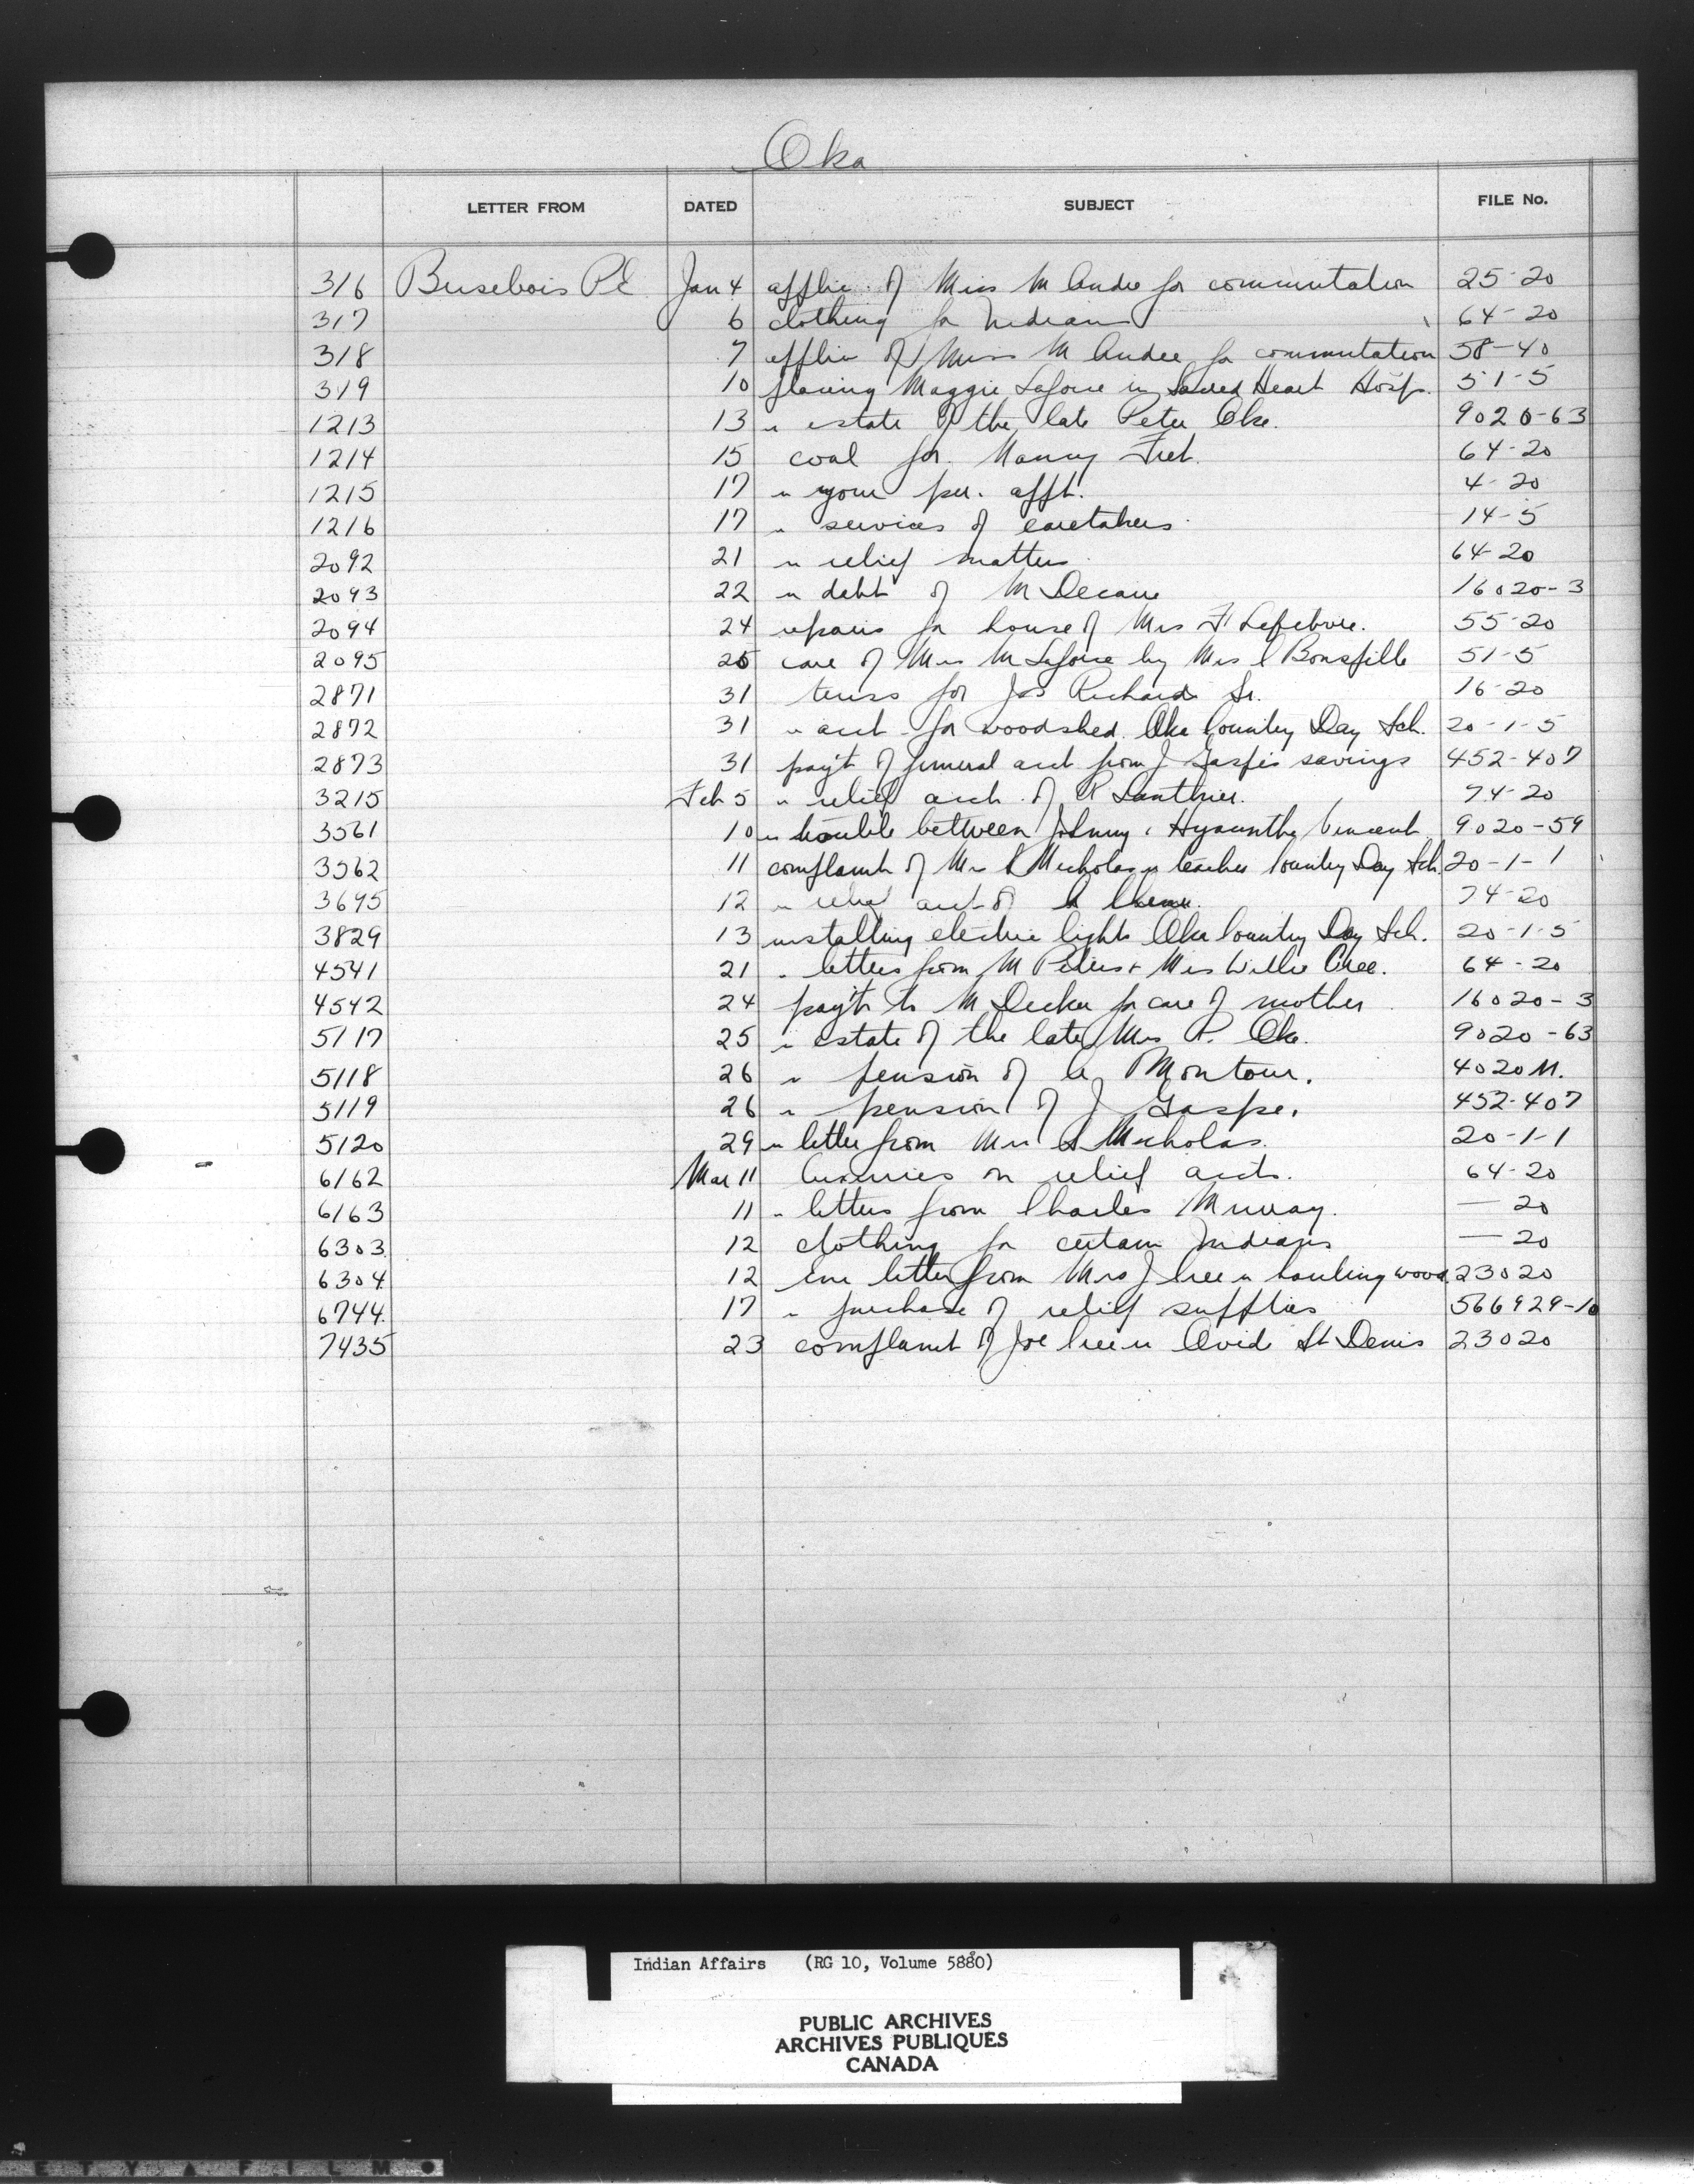 Oka
LETTER FROM DATED SUBJECT FILE No.
316 Brisebois P.E Jan 4 applic. of Miss M Andre for commutation 25-20
317 6 clothing for Indians 64-20
318 7 applic of Miss M Andre for commutation 58-40
319 10 placing Maggie Lafoire in Sacred Heart Hosp. 51-5
1213 13 " estate of the late Peter Oke. 9020-63
1214 15 coal for Nanny 64-20
1215 17 " your per. appt. 4-20
1216 17 " services of caretakers 14-5
2092 21 " relief matters 64-20
2093 22 " debt of M Decaire 16020-3
2094 24 repairs for house of Mrs F Lefebvre. 55-20
2095 25 care of Mrs M Lafoire by Mrs Bonspille 51-5
2871 31 truss for Jos Richard Sr. 16-20
2872 31 " acct for woodshed Oka Country Day Sch. 20-1-5
2873 31 pay't of funeral acct from J Gaspe's savings 452-407
3215 Feb 5 " relief acct. of R Lanthier. 74-20
3561 10 " trouble between Johnny & Hyacinthe Vincent 9020-59
3562 11 complaint of Mrs Nicholas " teacher Country Day Sch. 20-1-1
3695 12 " relief acct of 74-20
3829 13 installing electric lights Oka Country Day Sch. 20-1-5
4541 21 " letters from M Peters & Mrs Willie Cree. 64-20
4542 24 pay't to M Decker for care of mother 16020-3
5117 25 " estate of the late Mrs P. Oke. 9020-63
5118 26 " pension of A Montour. 4020M.
5119 26 " pension of J Gaspe. 452-407
5120 29 " letter from Mrs Nicholas. 20-1-1
6162 Mar 11 luxuries on relief accts. 64-20
6163 11 " letters from Charles Murray. — 20
6303 12 clothing for certain Indians — 20
6304 12 enc letter from Mrs J Cree " hauling wood 23020
6744 17 " purchase of relief supplies 566929-10
7435 23 complaint of Joe Cree " Ovide St Denis 23020
Indian Affairs (RG 10, Volume 5880)
PUBLIC ARCHIVES
ARCHIVES PUBLIQUES
CANADA
E T Y A F I L M